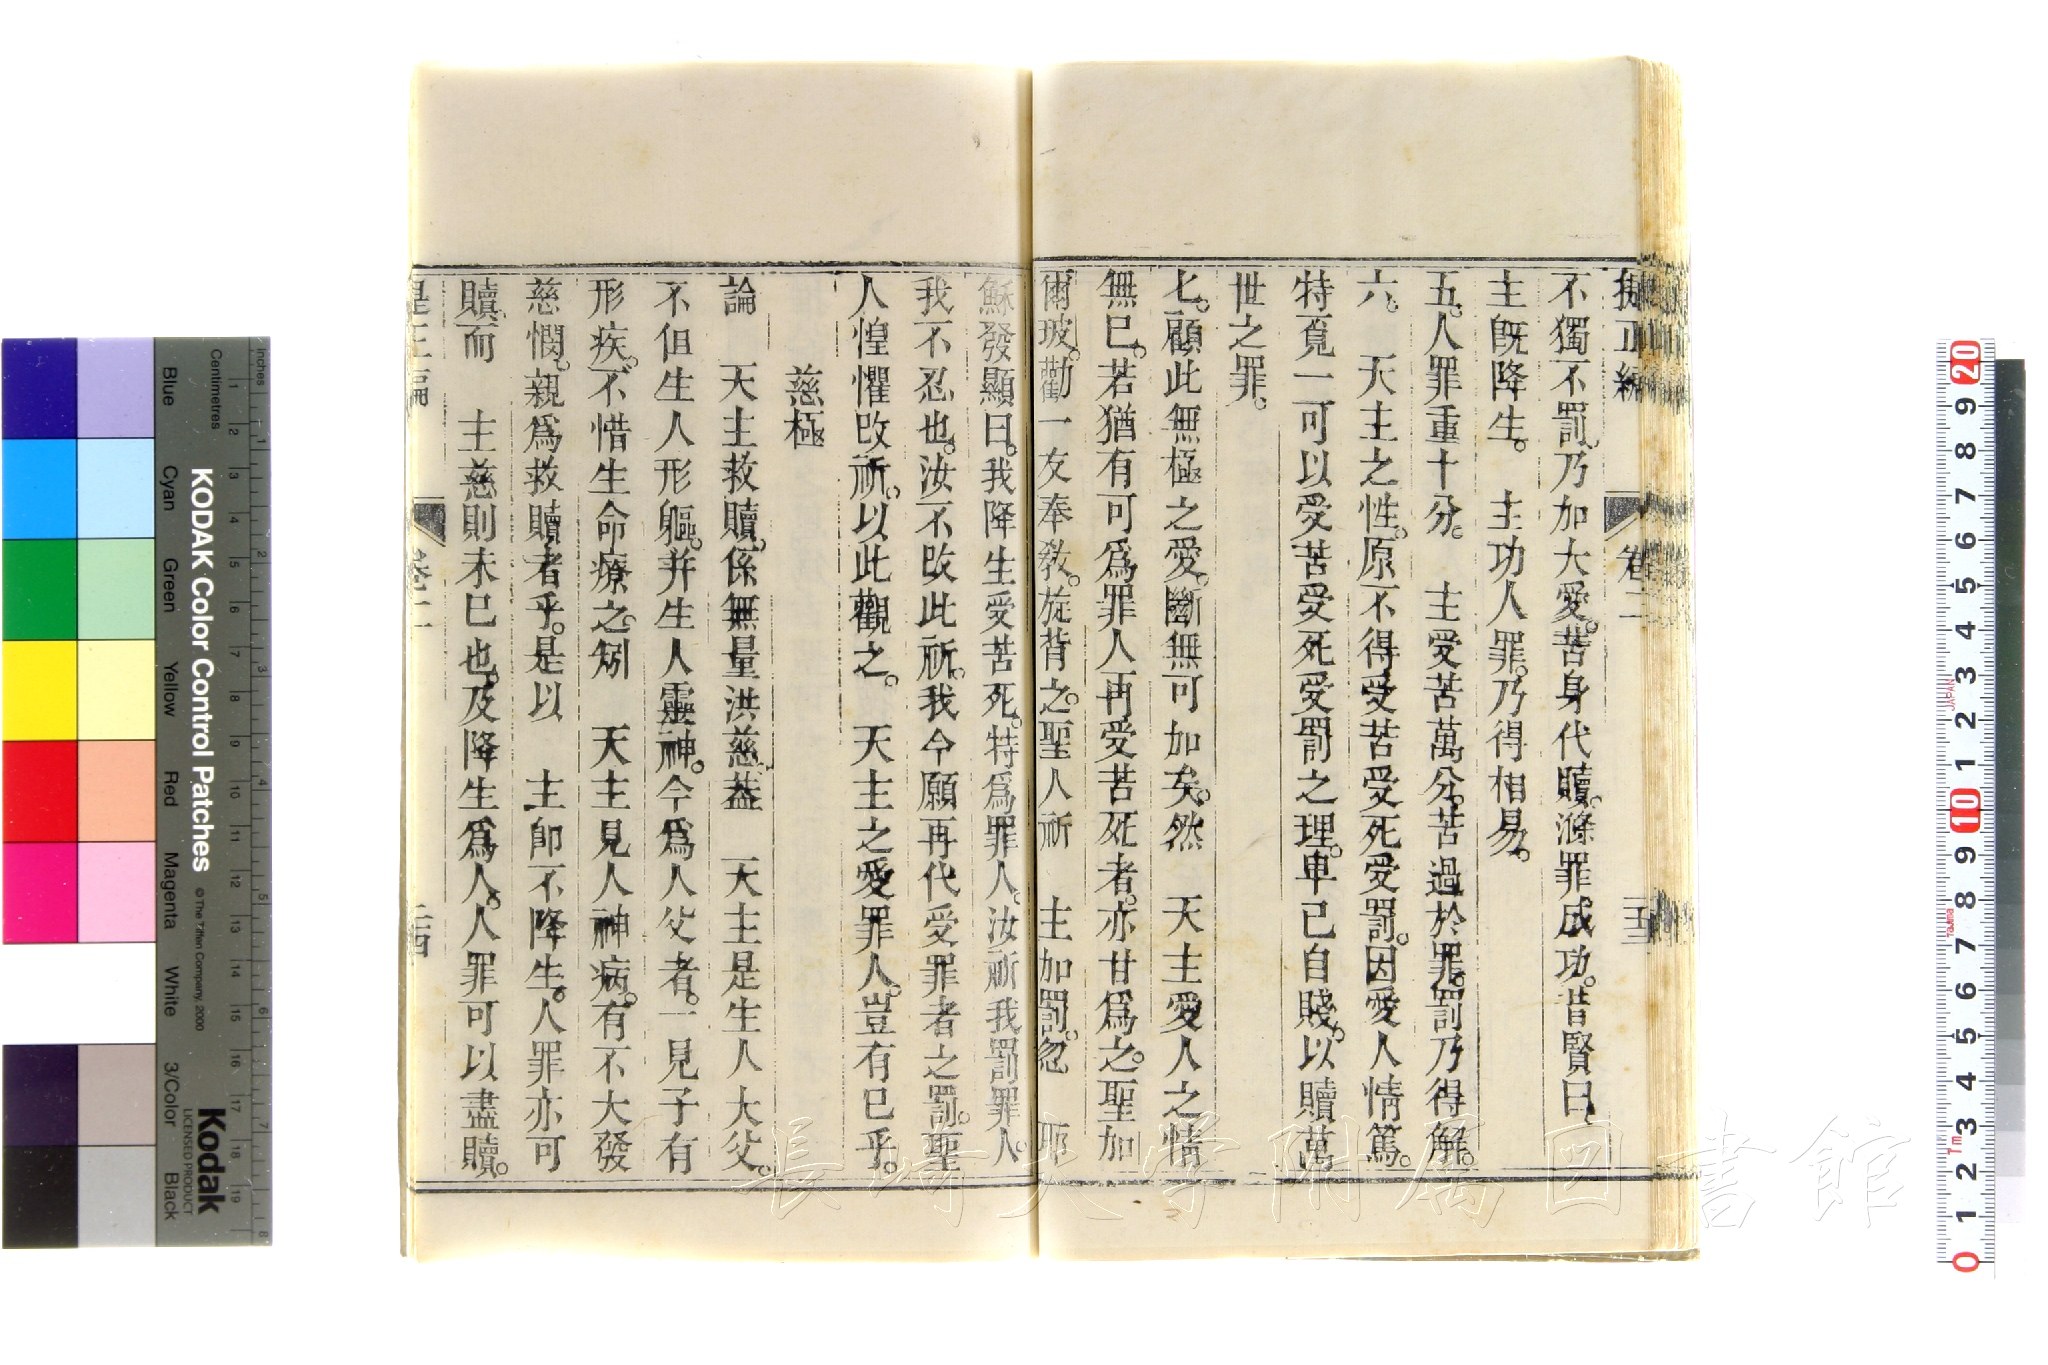 提正編 卷二
不獨不罰。乃加大愛。苦身代贖。滌罪成功。昔賢曰、
主旣降生。 主功人罪。乃得相易。
五。人罪重十分。 主受苦萬分。苦過於罪。罰乃得解。
六。 天主之性。原不得受苦受死受罰。因愛人情篤。
特覓一可以受苦受死受罰之理。卑已自賤。以贖萬
世之罪。
七。顧此無極之愛。斷無可加矣。然 天主愛人之情
無已。若猶有可爲罪人再受苦死者。亦甘爲之。聖加
爾玻。勸一友奉敎。旋背之。聖人祈 主加罰。忽 耶
穌發顯曰。我降生受苦死。特爲罪人。汝祈我罰罪人。
我不忍也。汝不改此祈。我今願再代受罪者之罰。聖
人惶懼改祈。以此觀之。 天主之愛罪人。豈有已乎。
慈極
論 天主救贖。係無量洪慈。葢 天主是生人大父。
不但生人形軀。幷生人靈神。今爲人父者。一見子有
形疾。不惜生命療之。矧 天主見人神病。有不大發
慈憫。親爲救贖者乎。是以 主卽不降生。人罪亦可
贖。而 主慈則未已也。及降生爲人。人罪可以盡贖。
提正編 卷二
長崎大学附属図書館
KODAK Color Control Patches
© The Tiffen Company, 2000
Kodak
LICENSED PRODUCT
Inches
Centimetres
Blue Cyan Green Yellow Red Magenta White 3/Color Black
1 2 3 4 5 6 7 8
1 2 3 4 5 6 7 8 9 10 11 12 13 14 15 16 17 18 19
20 9 8 7 6 5 4 3 2 1 10 9 8 7 6 5 4 3 2 1 0
JAPAN